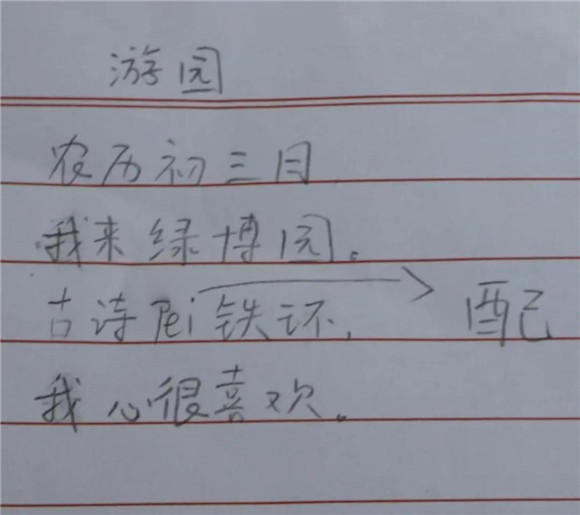 游园
农历初三日
我来绿博园。
古诗Pei铁环, 配
我心很喜欢。